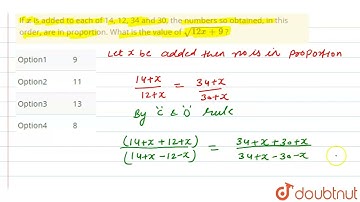 If x is added to each of 14, 12, 34 and 30, the numbers so obtained, in this
order, are in proportion. What is the value of √12x + 9 ?
Option1 9
Option2 11
Option3 13
Option4 8
Let x be added then no is in proportion
14+x / 12+x = 34+x / 30+x
By C & D rule
(14+x+12+x) / (14+x-12-x) = 34+x+30+x / 34+x-30-x
doubtnut